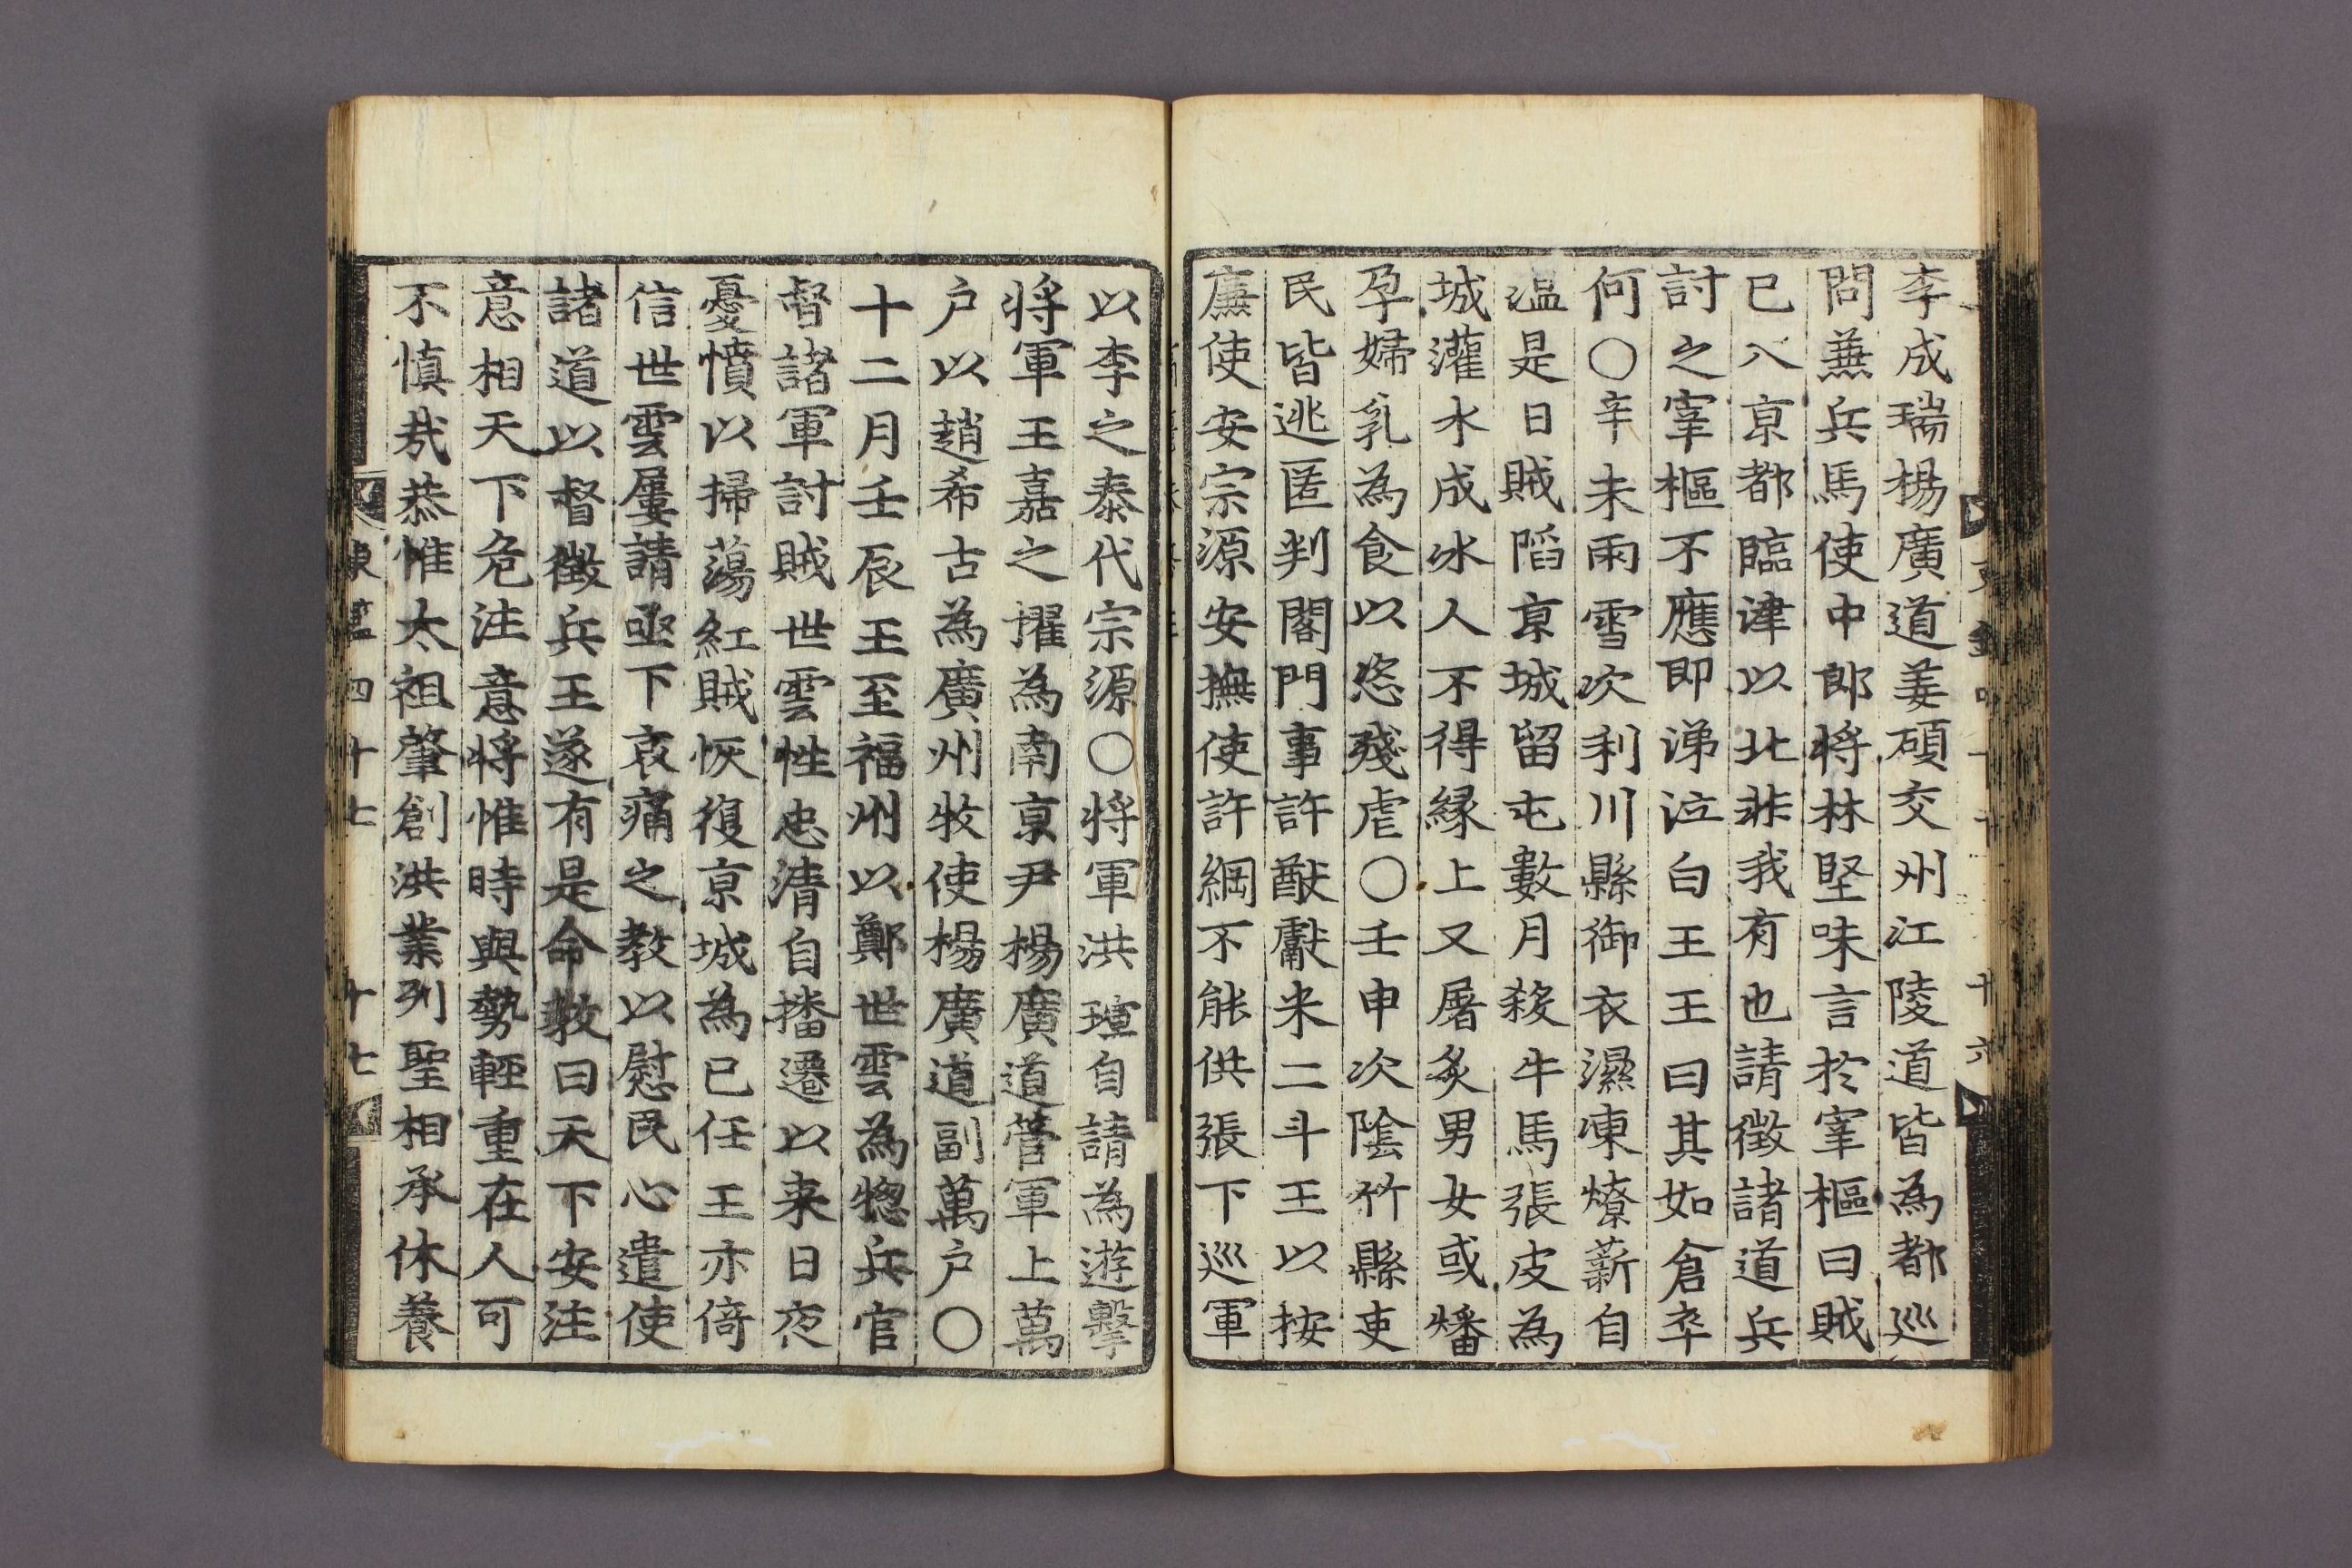 李成瑞楊廣道姜碩交州江陵道皆為都巡
問兼兵馬使中郎將林堅味言於宰樞曰賊
已入京都臨津以北非我有也請徵諸道兵
討之宰樞不應即涕泣白王王曰其如倉卒
何○辛未雨雪次利川縣御衣濕凍燎薪自
溫是日賊陷京城留屯數月殺牛馬張皮為
城灌水成冰人不得緣上又屠炙男女或燔
孕婦乳為食以恣殘虐○壬申次陰竹縣吏
民皆逃匿判閣門事許猷獻米二斗王以按
廉使安宗源安撫使許綱不能供張下巡軍
十六
以李之泰代宗源○將軍洪瑄自請為遊擊
將軍王嘉之擢為南京尹楊廣道管軍上萬
户以趙希古為廣州牧使楊廣道副萬户○
十二月壬辰王至福州以鄭世雲為摠兵官
督諸軍討賊世雲性忠清自播遷以来日夜
憂憤以掃蕩紅賊恢復京城為己任王亦倚
信世雲屢請亟下哀痛之教以慰民心遣使
諸道以督徵兵王遂有是命教曰天下安注
意相天下危注意將惟時與勢輕重在人可
不慎哉恭惟太祖肇創洪業列聖相承休養
四十七 十七